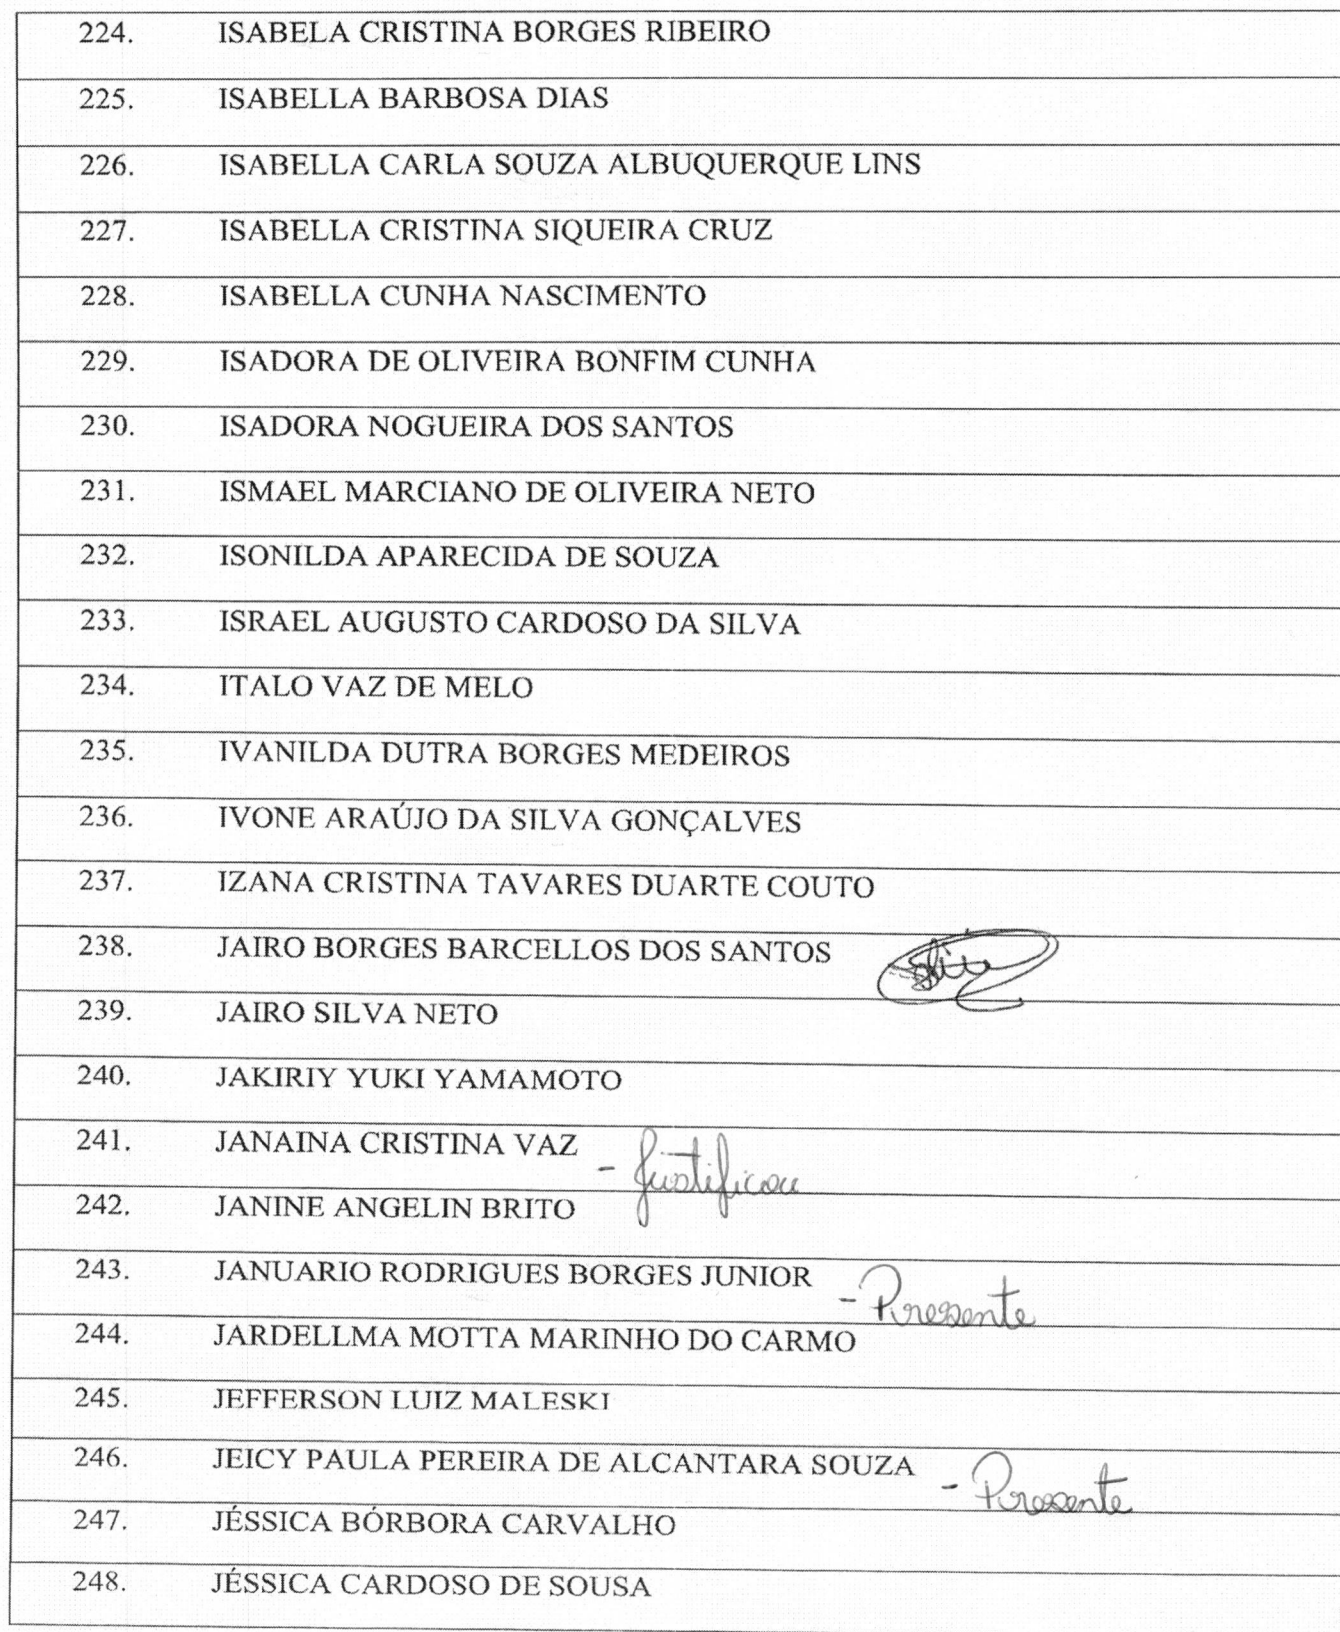 224. ISABELA CRISTINA BORGES RIBEIRO
225. ISABELLA BARBOSA DIAS
226. ISABELLA CARLA SOUZA ALBUQUERQUE LINS
227. ISABELLA CRISTINA SIQUEIRA CRUZ
228. ISABELLA CUNHA NASCIMENTO
229. ISADORA DE OLIVEIRA BONFIM CUNHA
230. ISADORA NOGUEIRA DOS SANTOS
231. ISMAEL MARCIANO DE OLIVEIRA NETO
232. ISONILDA APARECIDA DE SOUZA
233. ISRAEL AUGUSTO CARDOSO DA SILVA
234. ITALO VAZ DE MELO
235. IVANILDA DUTRA BORGES MEDEIROS
236. IVONE ARAÚJO DA SILVA GONÇALVES
237. IZANA CRISTINA TAVARES DUARTE COUTO
238. JAIRO BORGES BARCELLOS DOS SANTOS
239. JAIRO SILVA NETO
240. JAKIRIY YUKI YAMAMOTO
241. JANAINA CRISTINA VAZ - Justificou
242. JANINE ANGELIN BRITO
243. JANUARIO RODRIGUES BORGES JUNIOR - Presente
244. JARDELLMA MOTTA MARINHO DO CARMO
245. JEFFERSON LUIZ MALESKI
246. JEICY PAULA PEREIRA DE ALCANTARA SOUZA - Presente
247. JÉSSICA BÓRBORA CARVALHO
248. JÉSSICA CARDOSO DE SOUSA